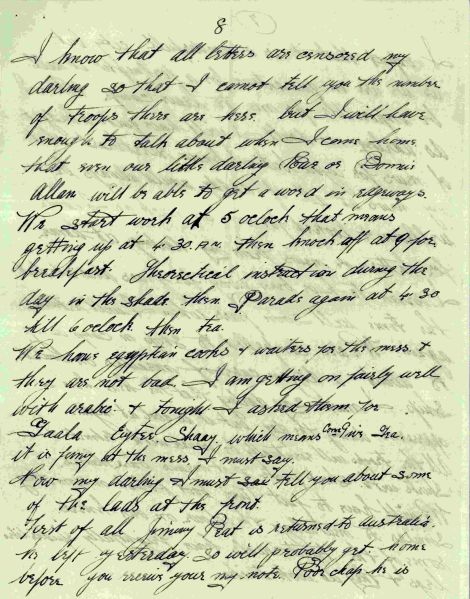 8
I know that all letters are censored my
darling so that I cannot tell you the number
of troops there are here. but I will have
enough to talk about when I come home
that even our little darling or Bonnie
Allan will be able to get a word in edgeways.
We start work at 5 oclock that means
getting up at 4.30. A.M. then knock off at 9 for
breakfast. Theoretical instruction during the
day in the shade then Parade again at 4.30
till 6 oclock then tea.
We have egyptian cooks & waiters for the mess. &
they are not bad. I am getting on fairly well
with arabic. & tonight I asked them for
Taala. Shaay. which means Come Give Tea.
it is funy at the mess I must say.
Now my darling I must say tell you about some
of the lads at the front.
First of all Jimmy Peat is returned to Australia.
he left yesterday so will probably get home
before you receive your my note. Poor chap he is